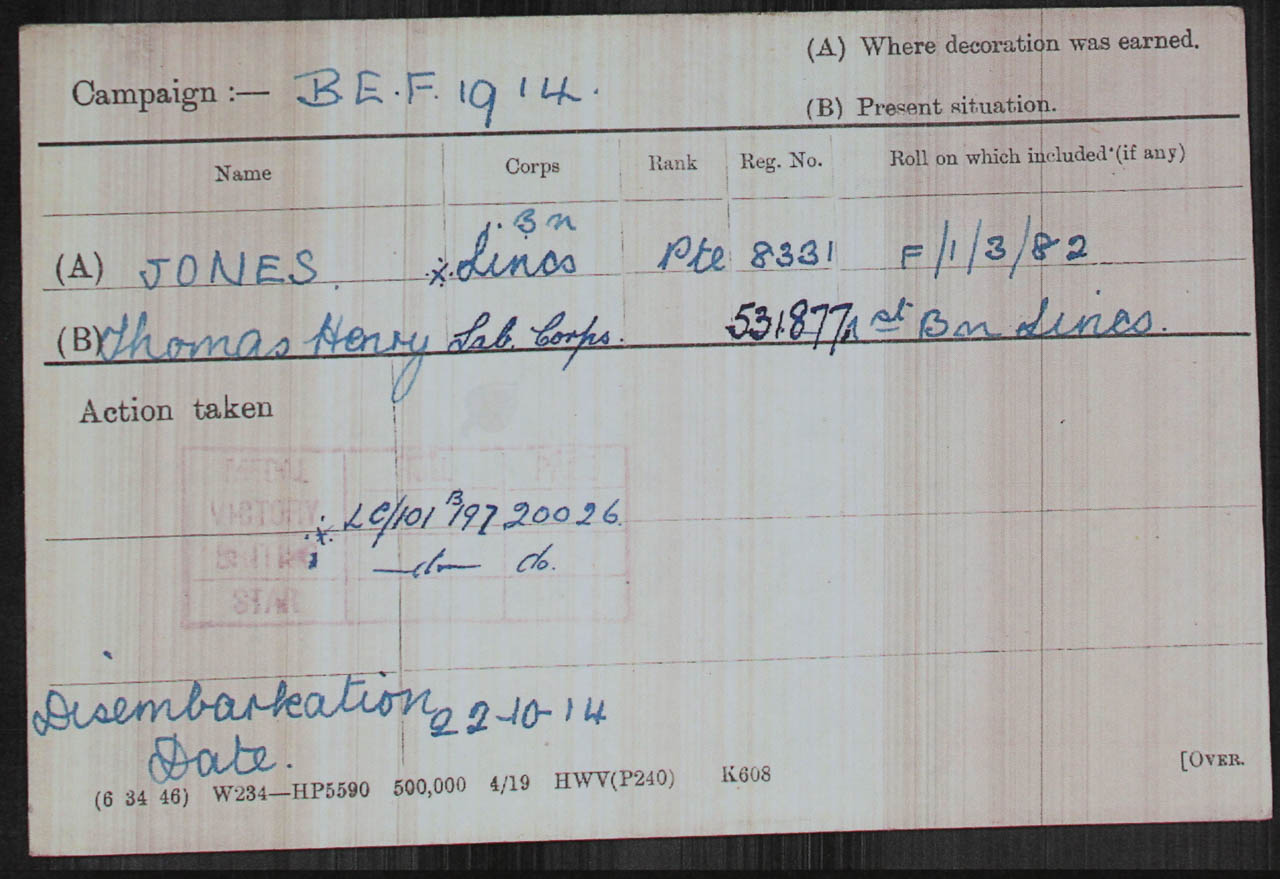 (A) Where decoration was earned.
Campaign :— B.E.F. 1914.
(B) Present situation.
Name Corps Rank Reg. No. Roll on which included (if any)
1. Bn
(A) JONES. x. Lincs Pte 8331 F/1/3/82
(B) Thomas Henry Lab. Corps. 531877 1st Bn Lincs.
Action taken
x. LC/101 B/97 20026.
—do— do.
Disembarkation 22-10-14
Date.
[OVER.
(6 34 46) W234—HP5590 500,000 4/19 HWV(P240) K608